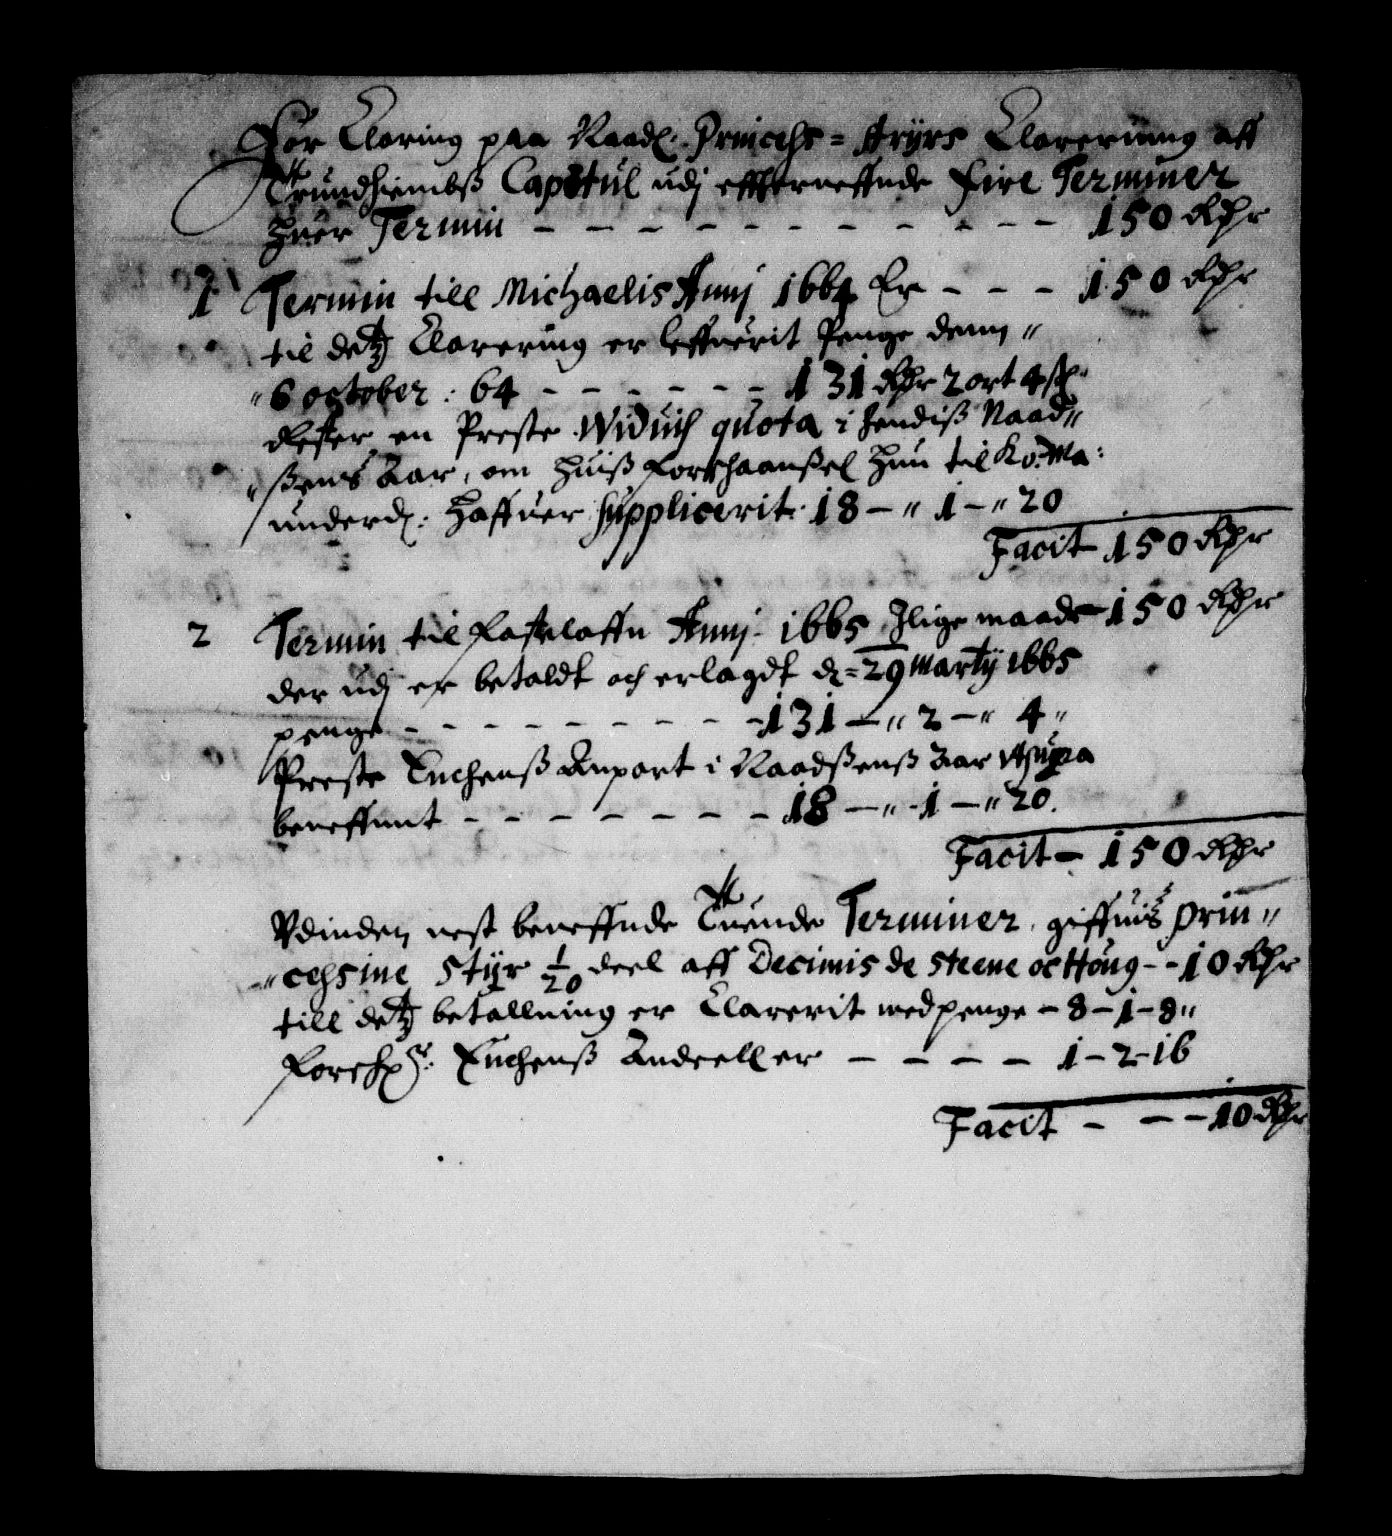 For Claring paa Naad: Princess= Styrs Clarering aff
Trundhiembß Capitul udj effterneffnde Fire Terminer
Huer Termin - - - - - - - - - - 150 Rdr
1 Termin till Michaelis Annj 1664 Er - - - 150 Rdr
til detz Clarering er leffuerit Penge denn "
" 6 october : 64 - - - - - - 131 Rdr 2 ort 4 sh
Rester en Preste quota i hendiß Naad"
" ßens Aar, om huiß hun til Ko: Ma:
underd: haffuer Supplicerit. 18 - " 1 - " 20
Facit 150 Rdr
2 Termin til Fastelaffn Annj 1665 Jlige maade 150 Rdr
der udj er betaldt och erlagdt d= 29 Marty 1665
penge - - - - - - - - 131 - " 2 - " 4 "
Preste Enchenß Anpart i Naadßenß Aar vt supra
bereffnnt - - - - - - - 18 - " 1 - " 20.
Facit - 150 Rdr
Vdinden nest bereffnde Tuende Terminer, giffuis Prin "
" cessine Styr 1/20 deel aff Decimis de Steene oc Houg - - 10 Rdr
till detz betallning er Clarerit med penge - 8 - 1 - 8 "
Enchenß Andeell er - - - - 1 - 2 - 16
Facit - - - 10 Rdr